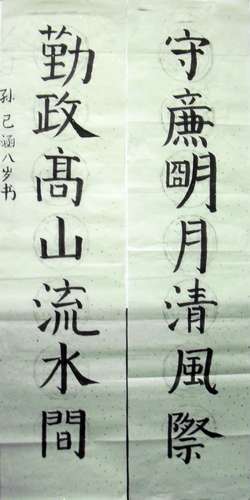 守廉明月清風際
勤政髙山流水間
孙己涵八岁书